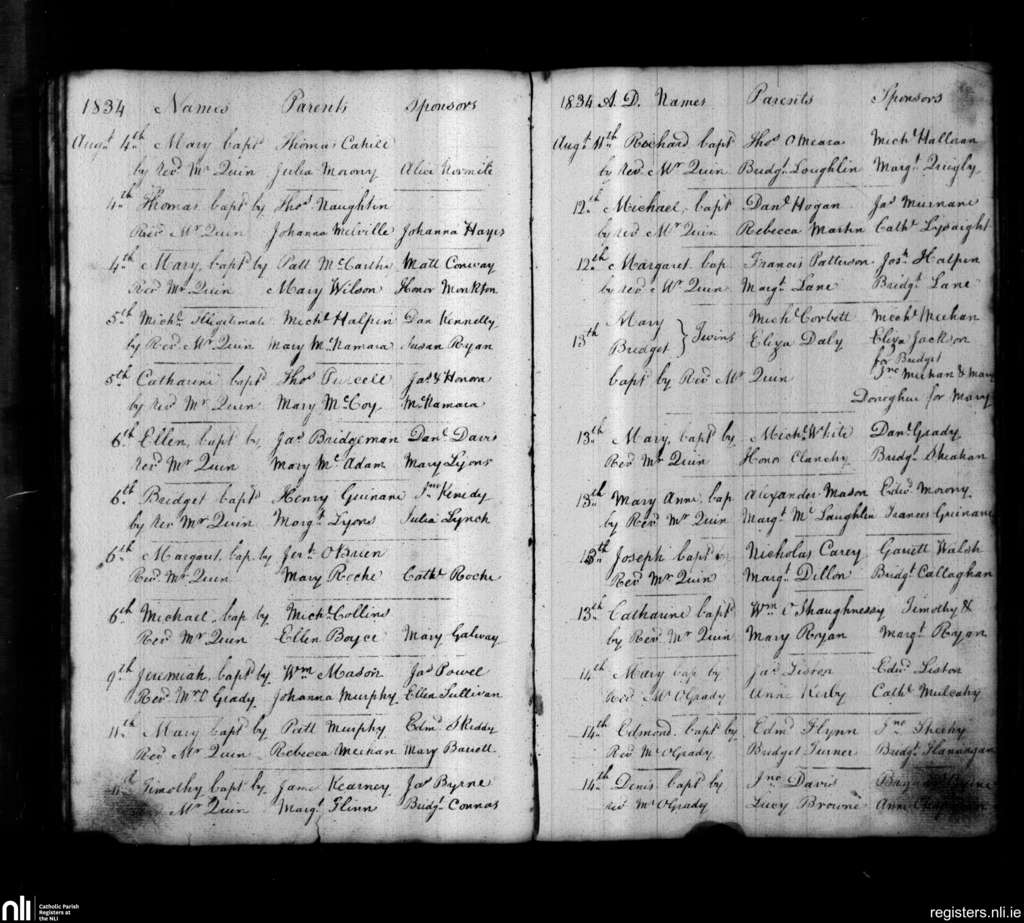 1834 Names Parents Sponsors
Augt 4th Mary bapt Thomas Cahill
by Revd Mr Quin Julia Morony Alice Normile
4th Thomas bapt by Thos Naughtin
Revd Mr Quin Johanna Melville Johanna Hayes
4th Mary, bapt by Patt McCartha Matt Conway
Revd Mr Quin Mary Wilson Honor Monkton
5th Michl Illegitimate Michl Halpin Dan Kennelly
by Revd Mr Quin Mary McNamara Susan Ryan
5th Catharine bapt Thos Purcell Jas & Honora
by Revd Mr Quin Mary McCoy McNamara
6th Ellen, bapt by Jas Bridgeman Danl Davis
Revd Mr Quin Mary McAdam Mary Lyons
6th Bridget bapt Henry Guinane Jno Kenedy
by Rev Mr Quin Margt Lyons Julia Lynch
6th Margaret bap. by Jerh OBrien
Revd Mr Quin Mary Roche Cathe Roche
6th Michael, bap by Michl Collins
Revd Mr Quin Ellen Boyce Mary Galway
9th Jeremiah, bapt by Wm Mason Jas Powel
Revd Mr O Grady Johanna Murphy Ellen Sullivan
11th Mary bapt by Patt Murphy Edmd Skiddy
Revd Mr Quin Rebecca Meehan Mary Barrett
Timothy bapt by Jame Kearney Jas Byrne
Mr Quin Margt Flinn Bridgt Connos
1834 A.D. Names Parents Sponsors
Augt 11th Richard bapt Thos OMeara Michl Hallinan
by Revd Mr Quin Bridgt Loughlin Margt Quigly
12th Michael, bapt Danl Hogan Jas Murnane
by Revd Mr Quin Rebecca Martin Cathe Lysaight
12th Margaret bap Francis Patterson Josh Halpin
by Revd Mr Quin Margt Lane Bridgt Lane
13th Mary Bridget } Twins Michl Corbett Michl Meehan
Eliza Daly Eliza Jackson
for Bridget
bapt by Revd Mr Quin Jno Meehan & Mary
Donoghue for Mary
13th Mary, bapt by Michl White Danl Grady
Revd Mr Quin Honor Clanchy Bridgt Sheahan
13th Mary Anne, bap Alexander Mason Edwd Morony
by Revd Mr Quin Margt McLaughlin Frances Guinane
13th Joseph bapt by Nicholas Carey Garrett Walsh
Revd Mr Quin Margt Dillon Bridgt Callaghan
13th Catharine bapt Wm O'Shaughnessy Timothy &
by Revd Mr Quin Mary Ryan Margt Ryan
14th Mary bap by Jas Liston Edwd Liston
Revd Mr OGrady Anne Kerby Cathe Mulcahy
14th Edmond, bapt by Edmd Flynn Jno Sheehy
Revd Mr OGrady Bridget Turner Bridgt Flanangan
14th Denis bapt by Jno Davis
Revd Mr OGrady Lucy Browne Anne
nli
Catholic Parish
Registers at
the NLI
registers.nli.ie